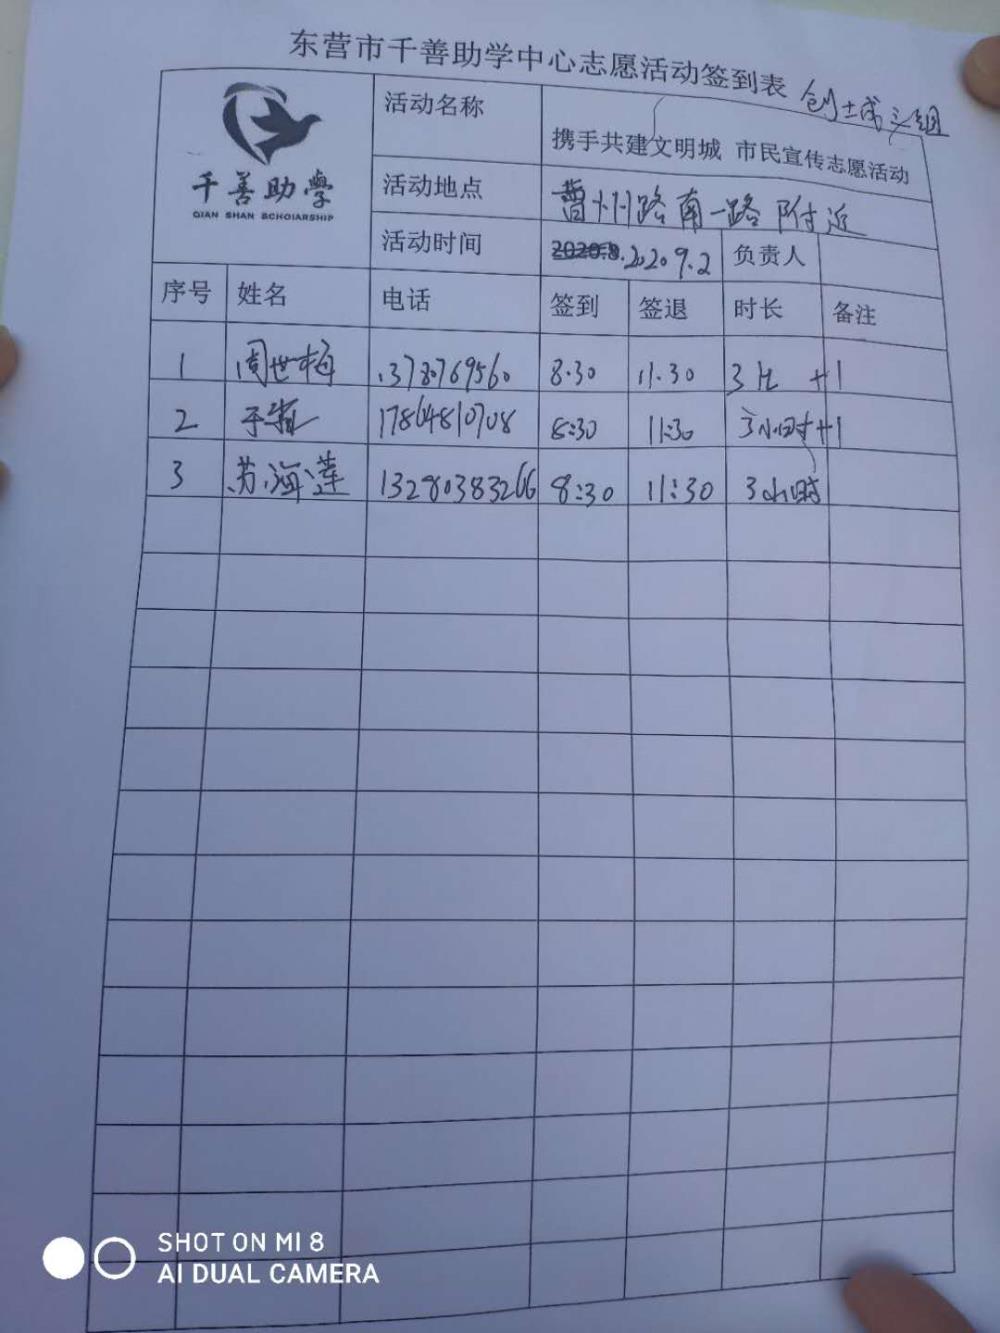 东营市千善助学中心志愿活动签到表
千善助學
QIAN SHAN SCHOlARSHIP
活动名称 携手共建文明城 市民宣传志愿活动
活动地点 曹州路南一路附近
活动时间 2020.9.2 负责人
序号 姓名 电话 签到 签退 时长 备注
1 周世梅 13780769560 8.30 11.30 3 +1
2 17864810708 8:30 11:30 3小时 +1
3 苏海莲 13280383266 8:30 11:30 3小时
SHOT ON MI 8
AI DUAL CAMERA